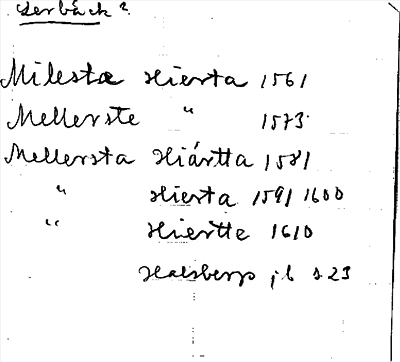 Lerbäck?
Milesta Hierta 1561
Mellerste " 1573
Mellersta Hiártta 1581
" Hierta 1591 1600
" Hiertte 1610
Halsberp jb s 23